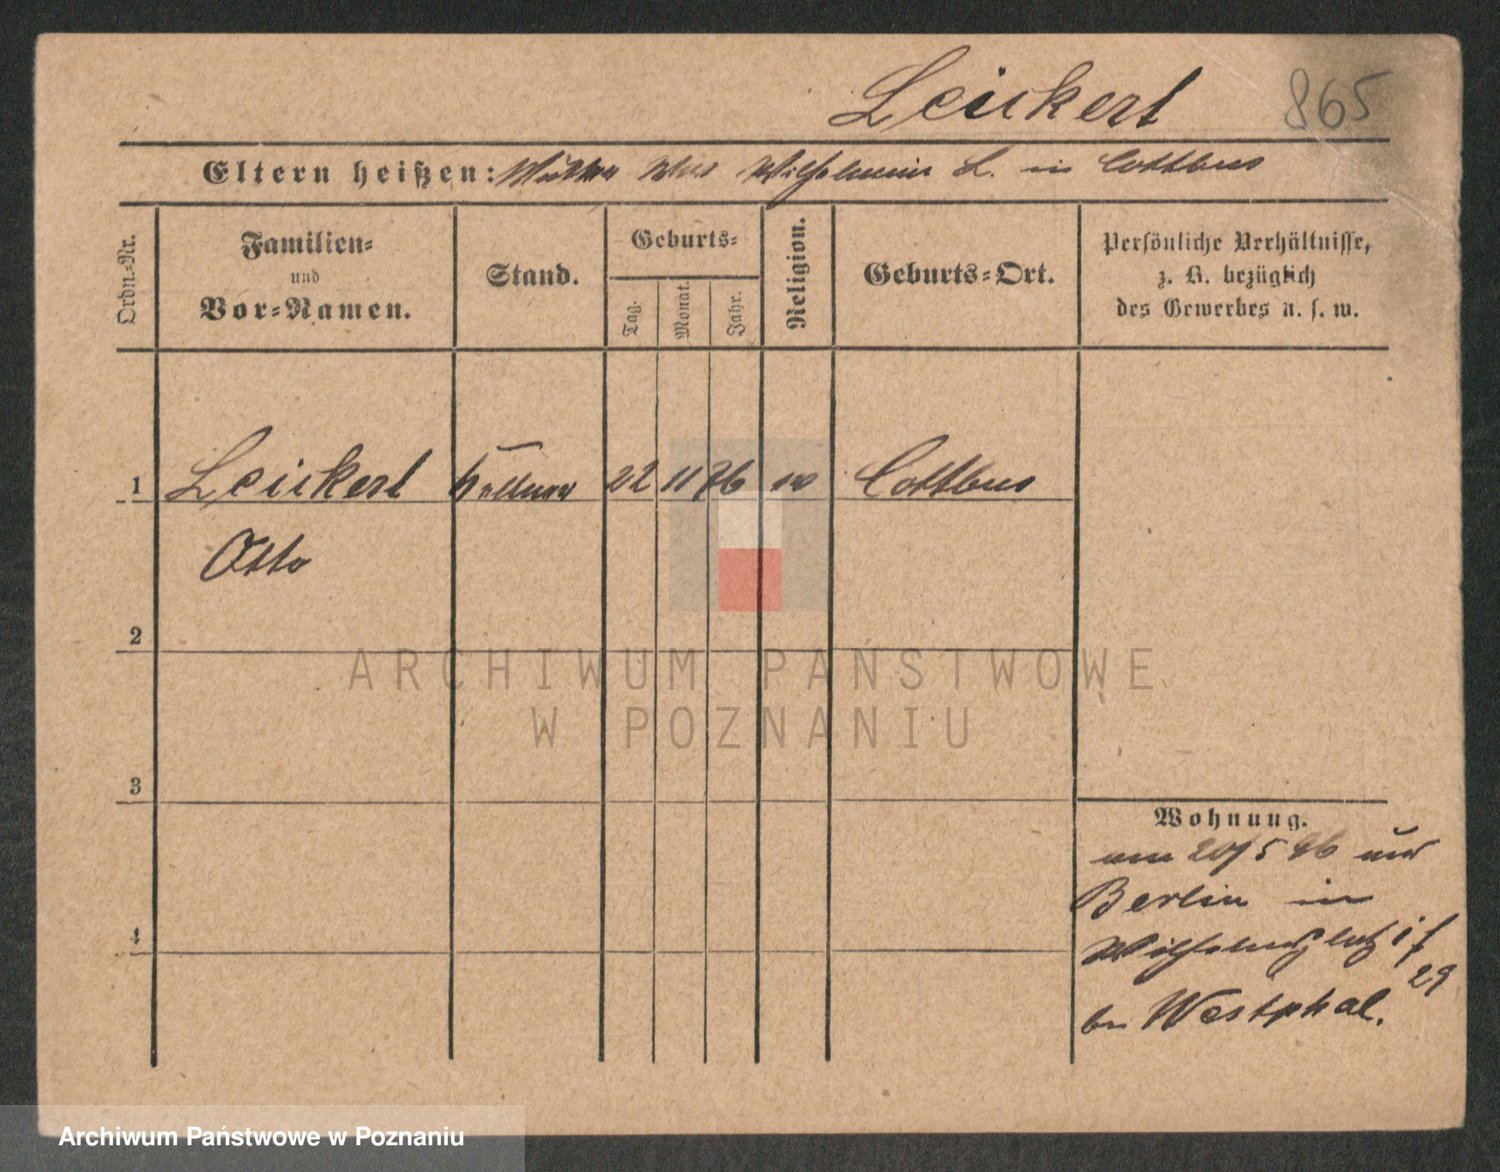 Leickert 865
Eltern heißen: Mutter Wilhelmine L. in Cottbus
Ordn.-Nr.
Familien-
und
Vor-Namen.
Stand.
Geburts-
Tag.
Monat.
Jahr.
Religion.
Geburts-Ort.
Persönliche Verhältnisse,
z. B. bezüglich
des Gewerbes u. s. w.
1 Leickert Kellner 22 11 76 Cottbus
Otto
2
3
4
Wohnung.
am 20/5 96 aus
Berlin in
Wilhelmsplatz
29
bei Westphal.
ARCHIWUM PAŃSTWOWE
W POZNANIU
Archiwum Państwowe w Poznaniu